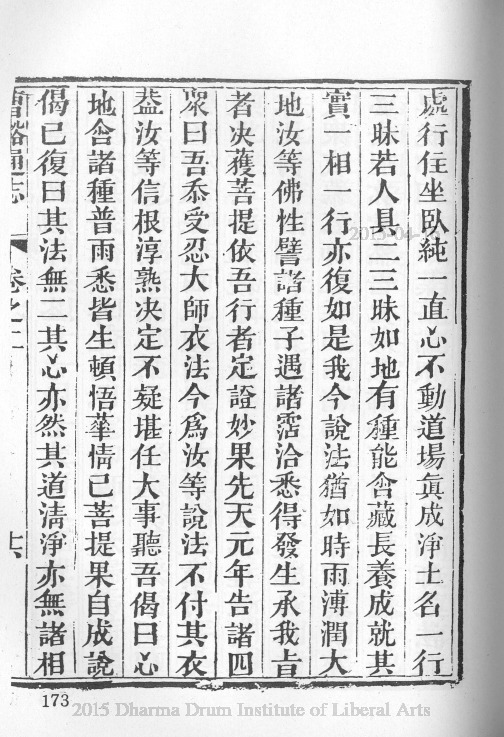 處行住坐臥純一直心不動道場眞成淨土名一行
三昧若人具二三昧如地有種能含藏長養成就其
實一相一行亦復如是我今說法猶如時雨溥潤大
地汝等佛性譬諸種子遇諸霑洽悉得發生承我旨
者决獲菩提依吾行者定證妙果先天元年告諸四
衆曰吾忝受忍大師衣法今爲汝等說法不付其衣
葢汝等信根淳熟决定不疑堪任大事聽吾偈曰心
地含諸種普雨悉皆生頓悟華情已菩提果自成說
偈已復曰其法無二其心亦然其道淸淨亦無諸相
曹谿通志 卷之二 十六
173
2015 Dharma Drum Institute of Liberal Arts